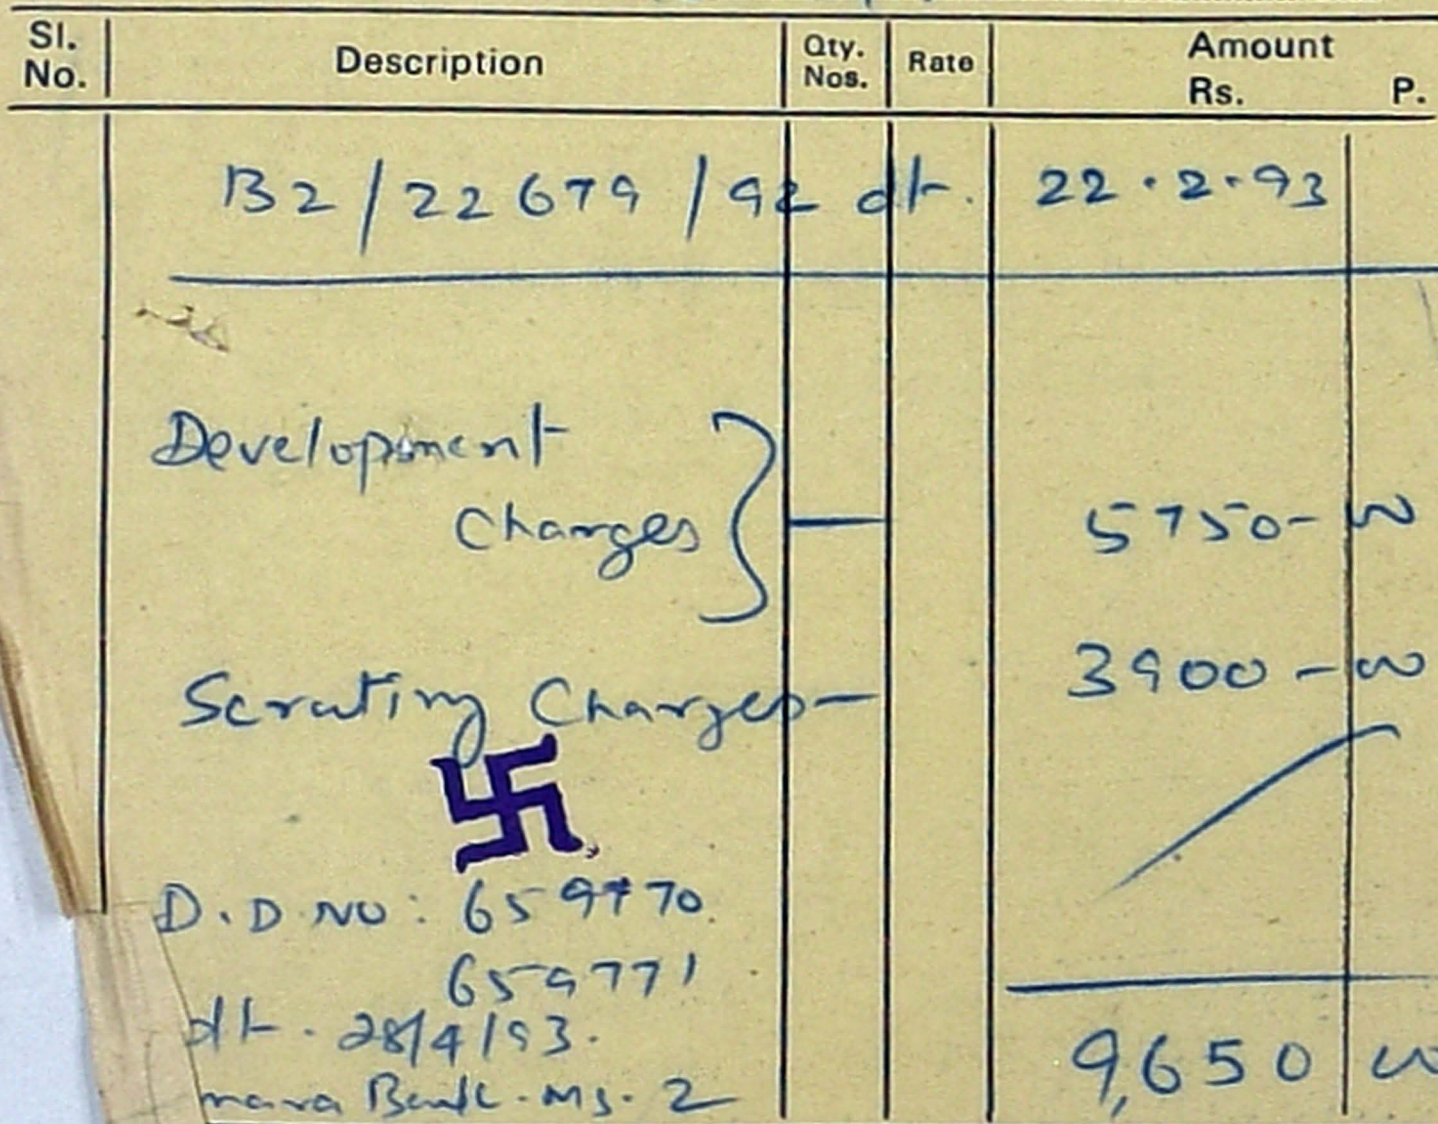 Sl. No. Description Qty. Nos. Rate Amount Rs. P.
B2/22679/92 dt. 22.2.93
Development
Charges 5750-00
Scruting Charges- 3900-00
D.D NO: 659770.
659771
dt. 28/4/93.
nara Bank. Ms. 2
9,650 00